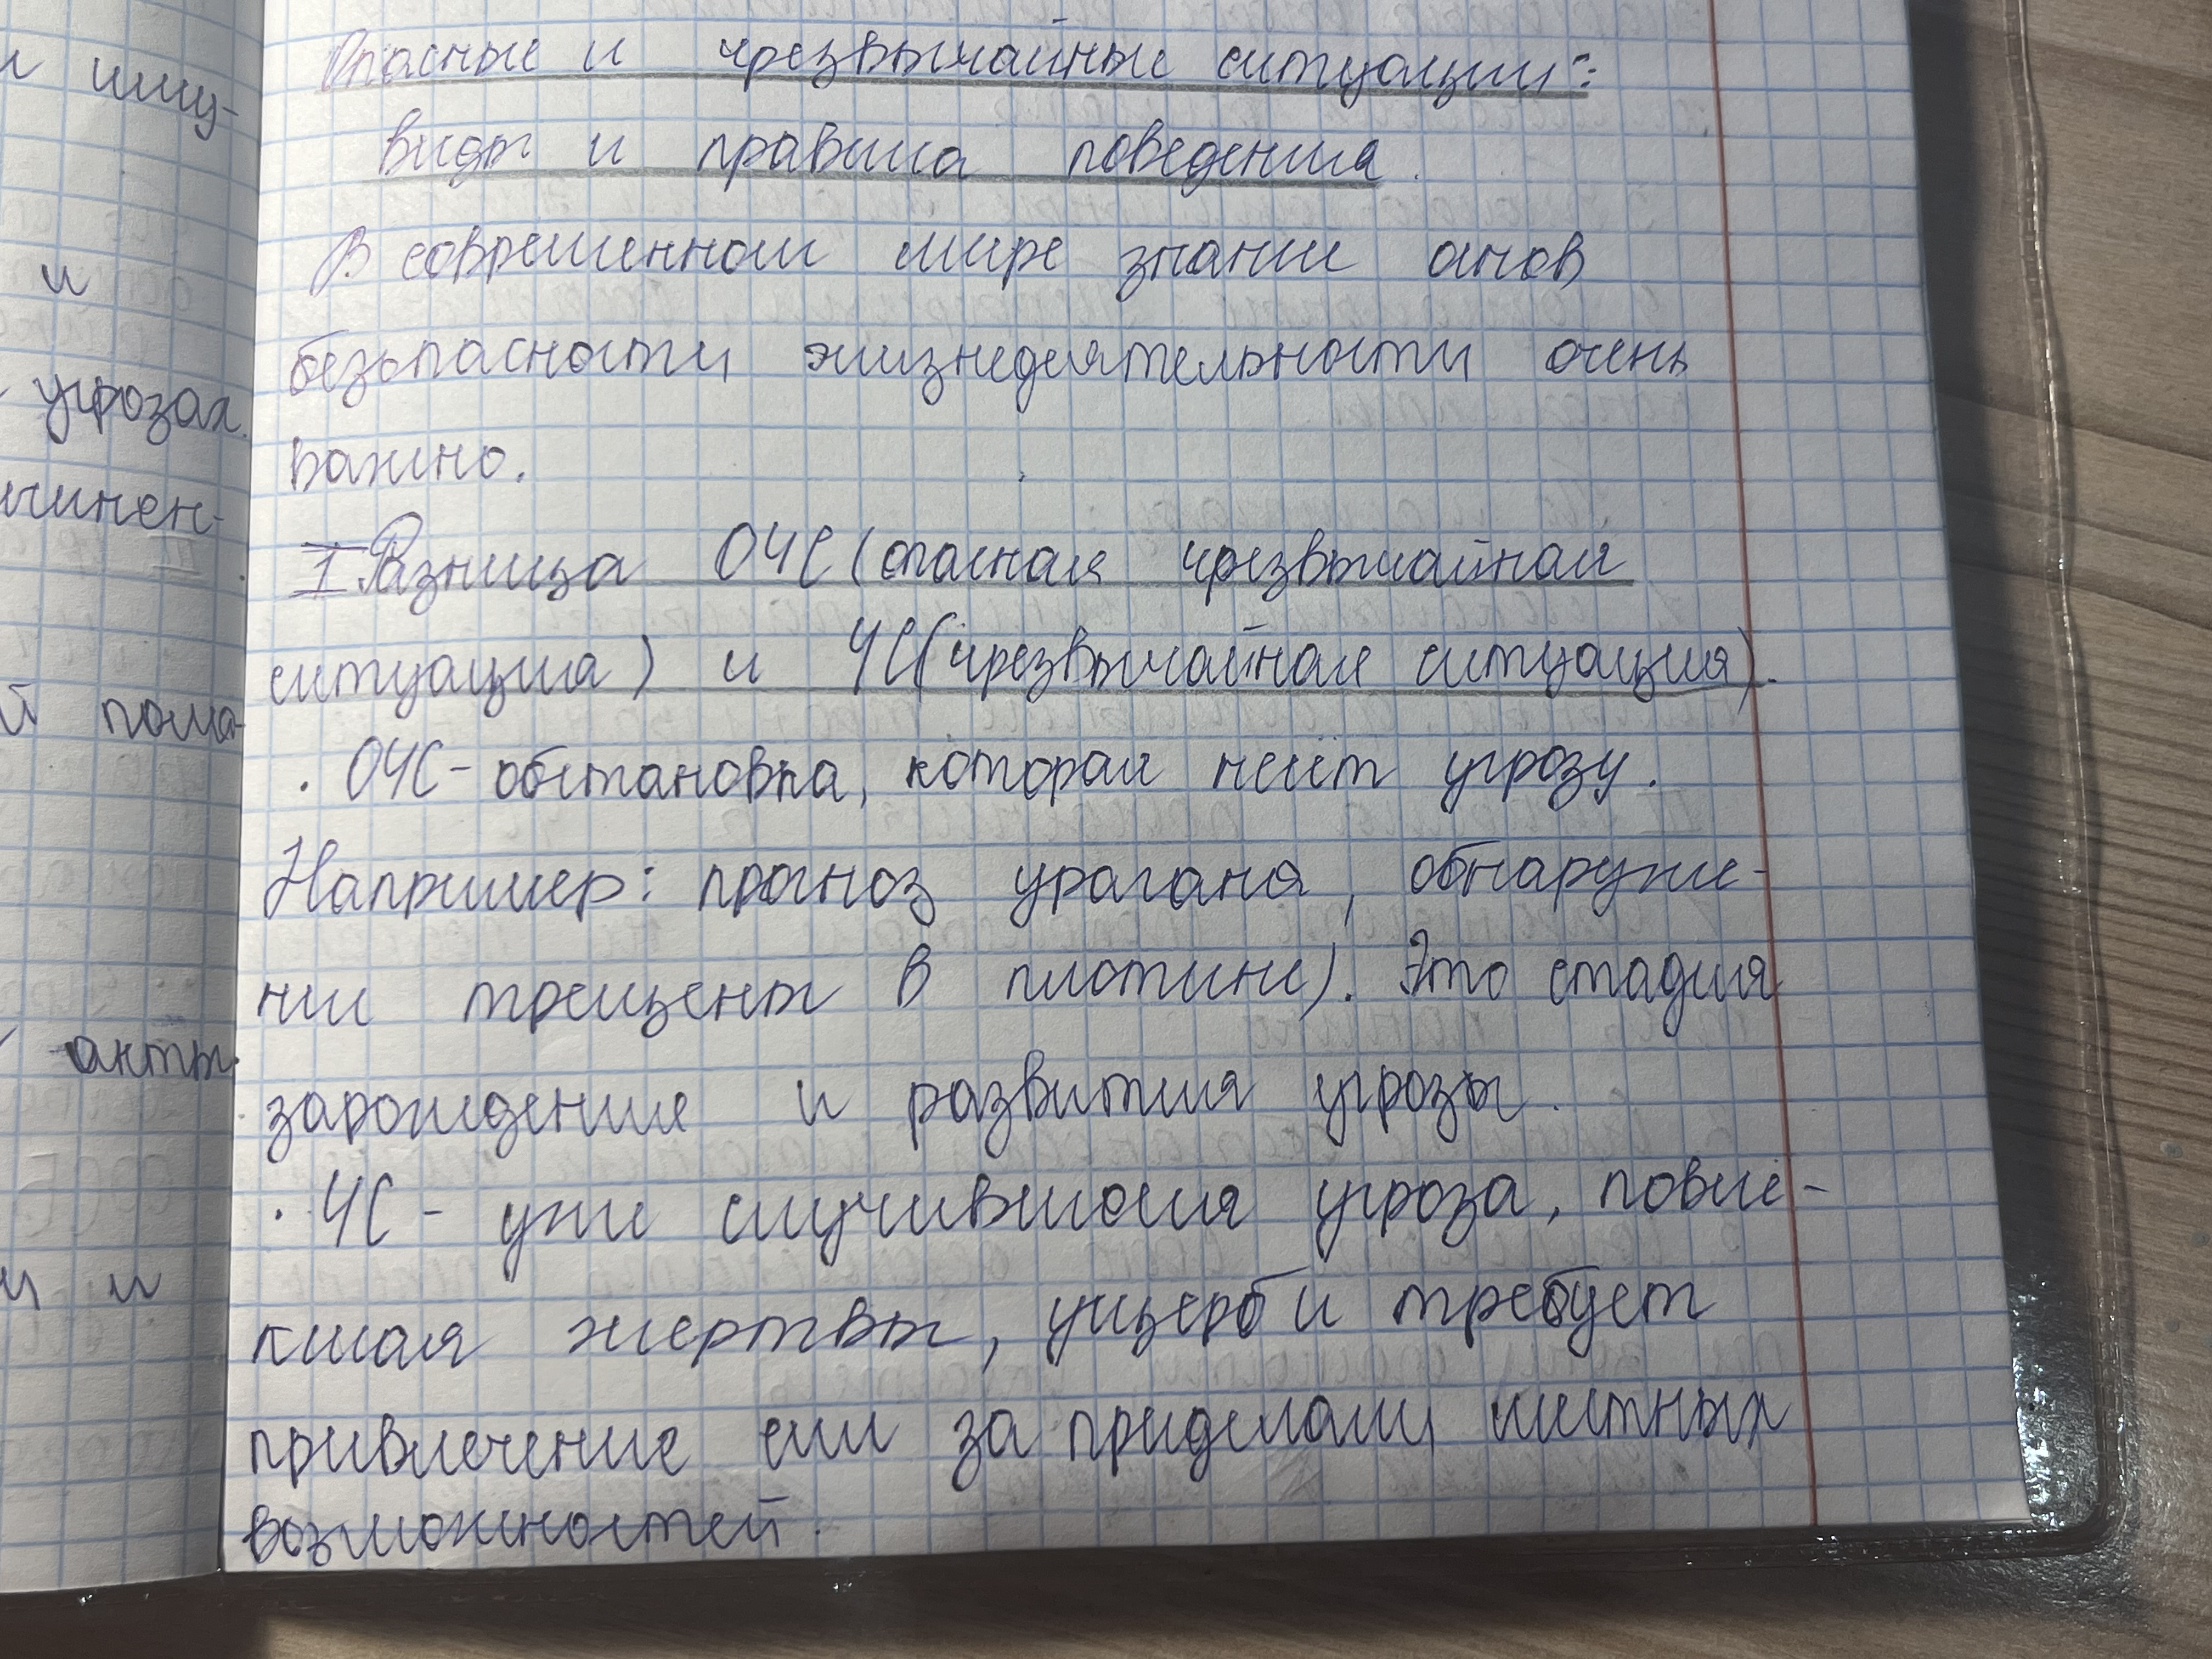 Опасные и чрезвычайные ситуации:
виды и правила поведения.
В современном мире знание онов
безопасности жизнедеятельности очень
важно.
I. Разница ОЧС (опасная чрезвычайная
ситуация) и ЧС (чрезвычайная ситуация).
· ОЧС - обстановка, которая несёт угрозу.
Например: прогноз урагана, обнаруже-
нии трещены в плотине). Это стадия
зарождение и развития угрозы.
· ЧС - уже случившаяся угроза, повле-
кшая жертвы, ущерб и требует
привлечение сил за приделами местных
возможностей.
и
угрозах.
чинен-
й пома-
акты.
и и